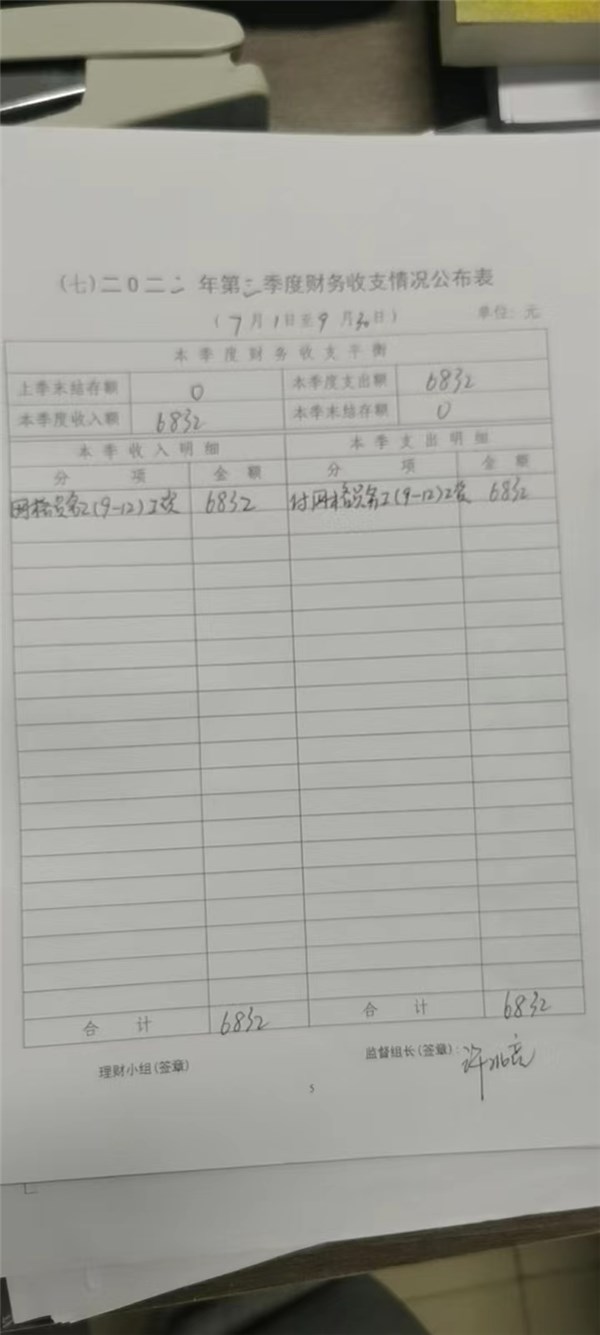 (七)二0二二年第三季度财务收支情况公布表
(7月1日至9月30日) 单位:元
本季度财务收支平衡
上季末结存额 0 本季度支出额 6832
本季度收入额 6832 本季末结存额 0
本季收入明细 本季支出明细
分项 金额 分项 金额
网格员务工(9-12)工资 6832 付网格员务工(9-12)工资 6832
合计 6832 合计 6832
理财小组(签章) 监督组长(签章):许
5